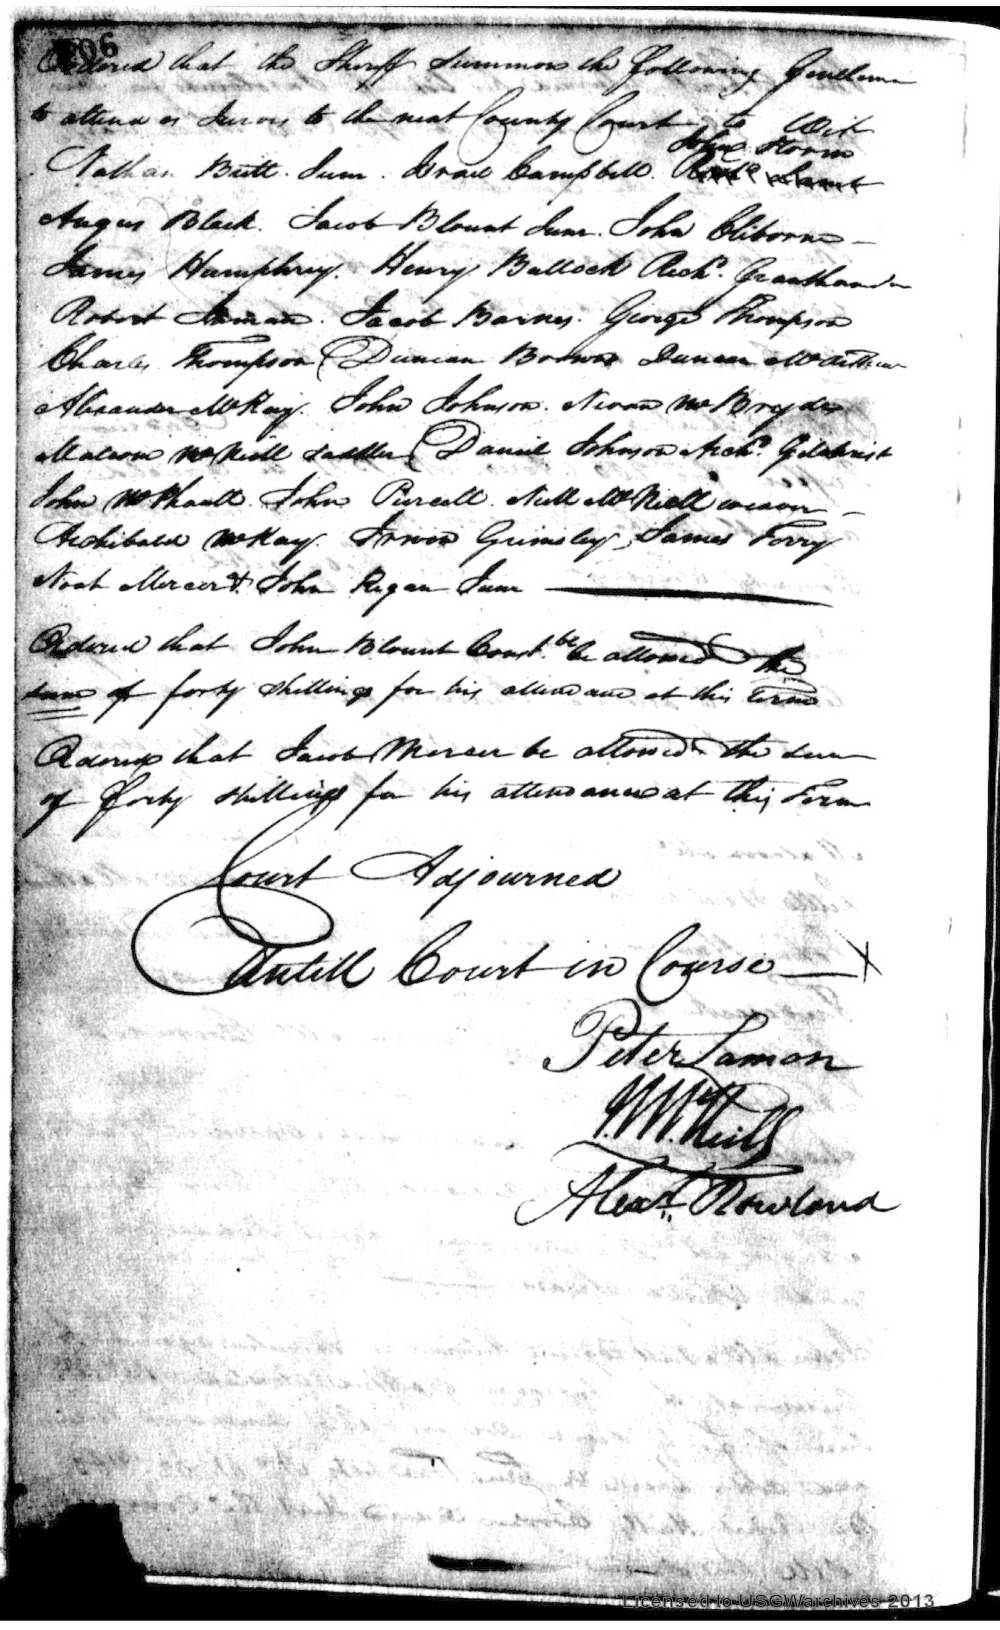 106
Ordered that the Sheriff Summon the following Gentlemen
to attend as Jurors to the next County Court to Wit
John Storm
Nathan Britt. Junr. Israel Campbell.
Angus Black. Jacob Blount Junr. John Cliborne
James Humphrey. Henry Bullock Richd. Grantham
Robert Inman. Jacob Barnes. George Thompson
Charles Thompson Duncan Brown Duncan McArthur
Alexander McKay. John Johnson. Nevan McBryde
Malcom McNeill Saddler Daniel Johnson Archd. Gilchrist
John McPhaull. John Purcell. Neill McNeill weaver
Archibald McKay. Irwin Grimsley, James Terry
Noah Mercer & John Regan Junr
Ordered that John Blount Const. be be allowed the
sum of forty shillings for his attendance at this Term
Ordered that Jacob Mercer be allowed the sum
of forty shillings for his attendance at this Term
Court Adjourned
Untill Court in Course X
Peter Lamon
J. McNeill
Alexr. Rowland
Licensed to USGWarchives 2013